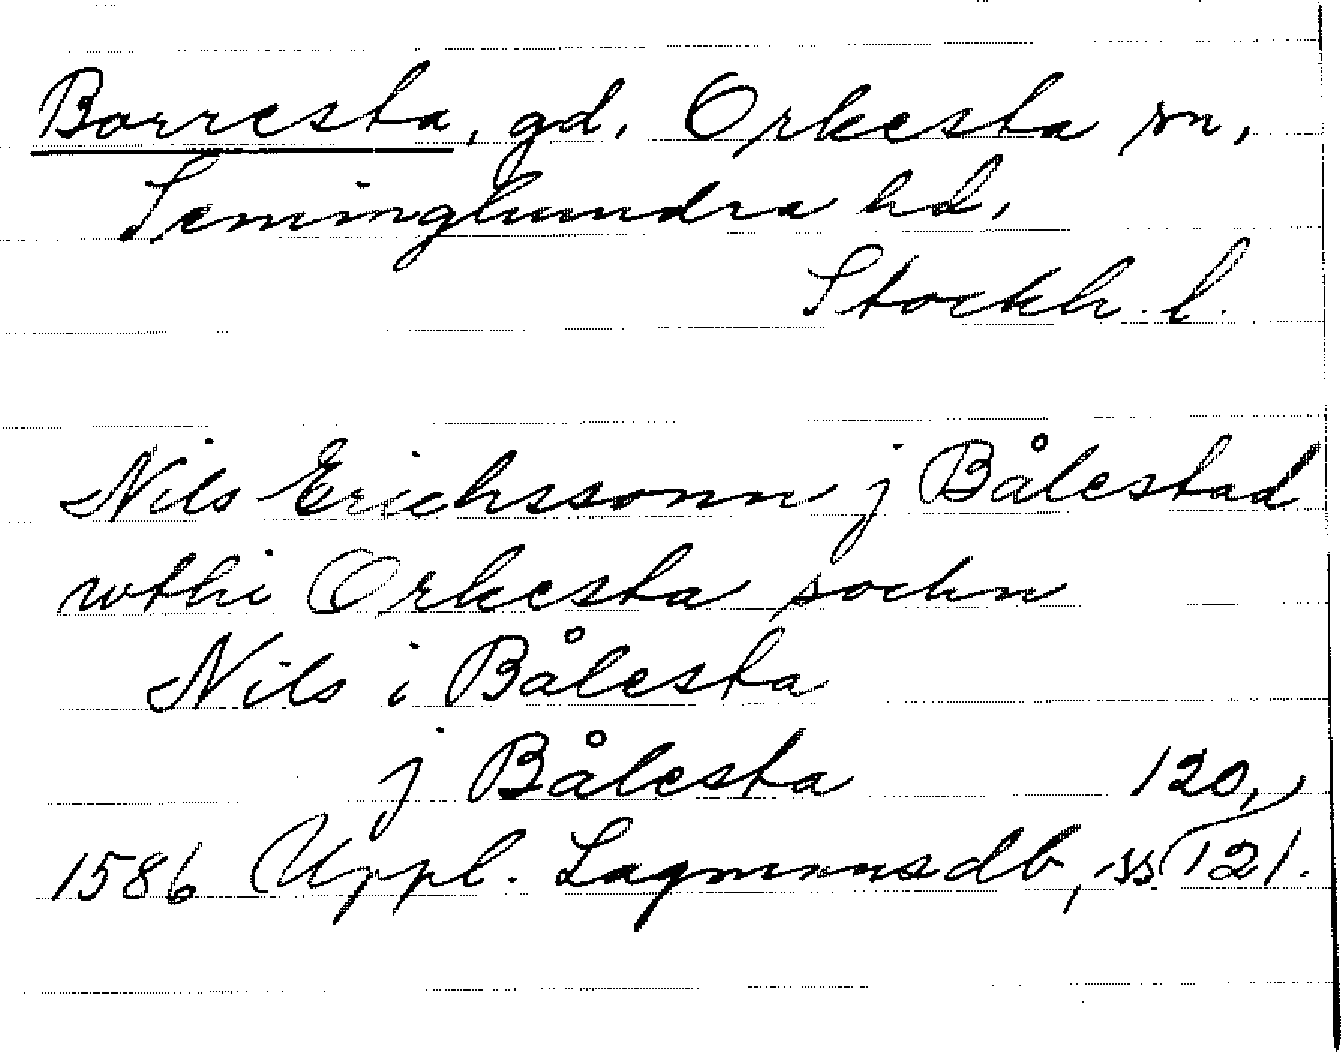 Borresta, gd, Orkesta sn,
Seminghundra hd,
Stockh. l.
Nils Erichssonn j Bålestad
wthi Orkesta sochn
Nils i Bålesta
j Bålesta 120,
1586 Uppl. Lagmansdb, ss 121.